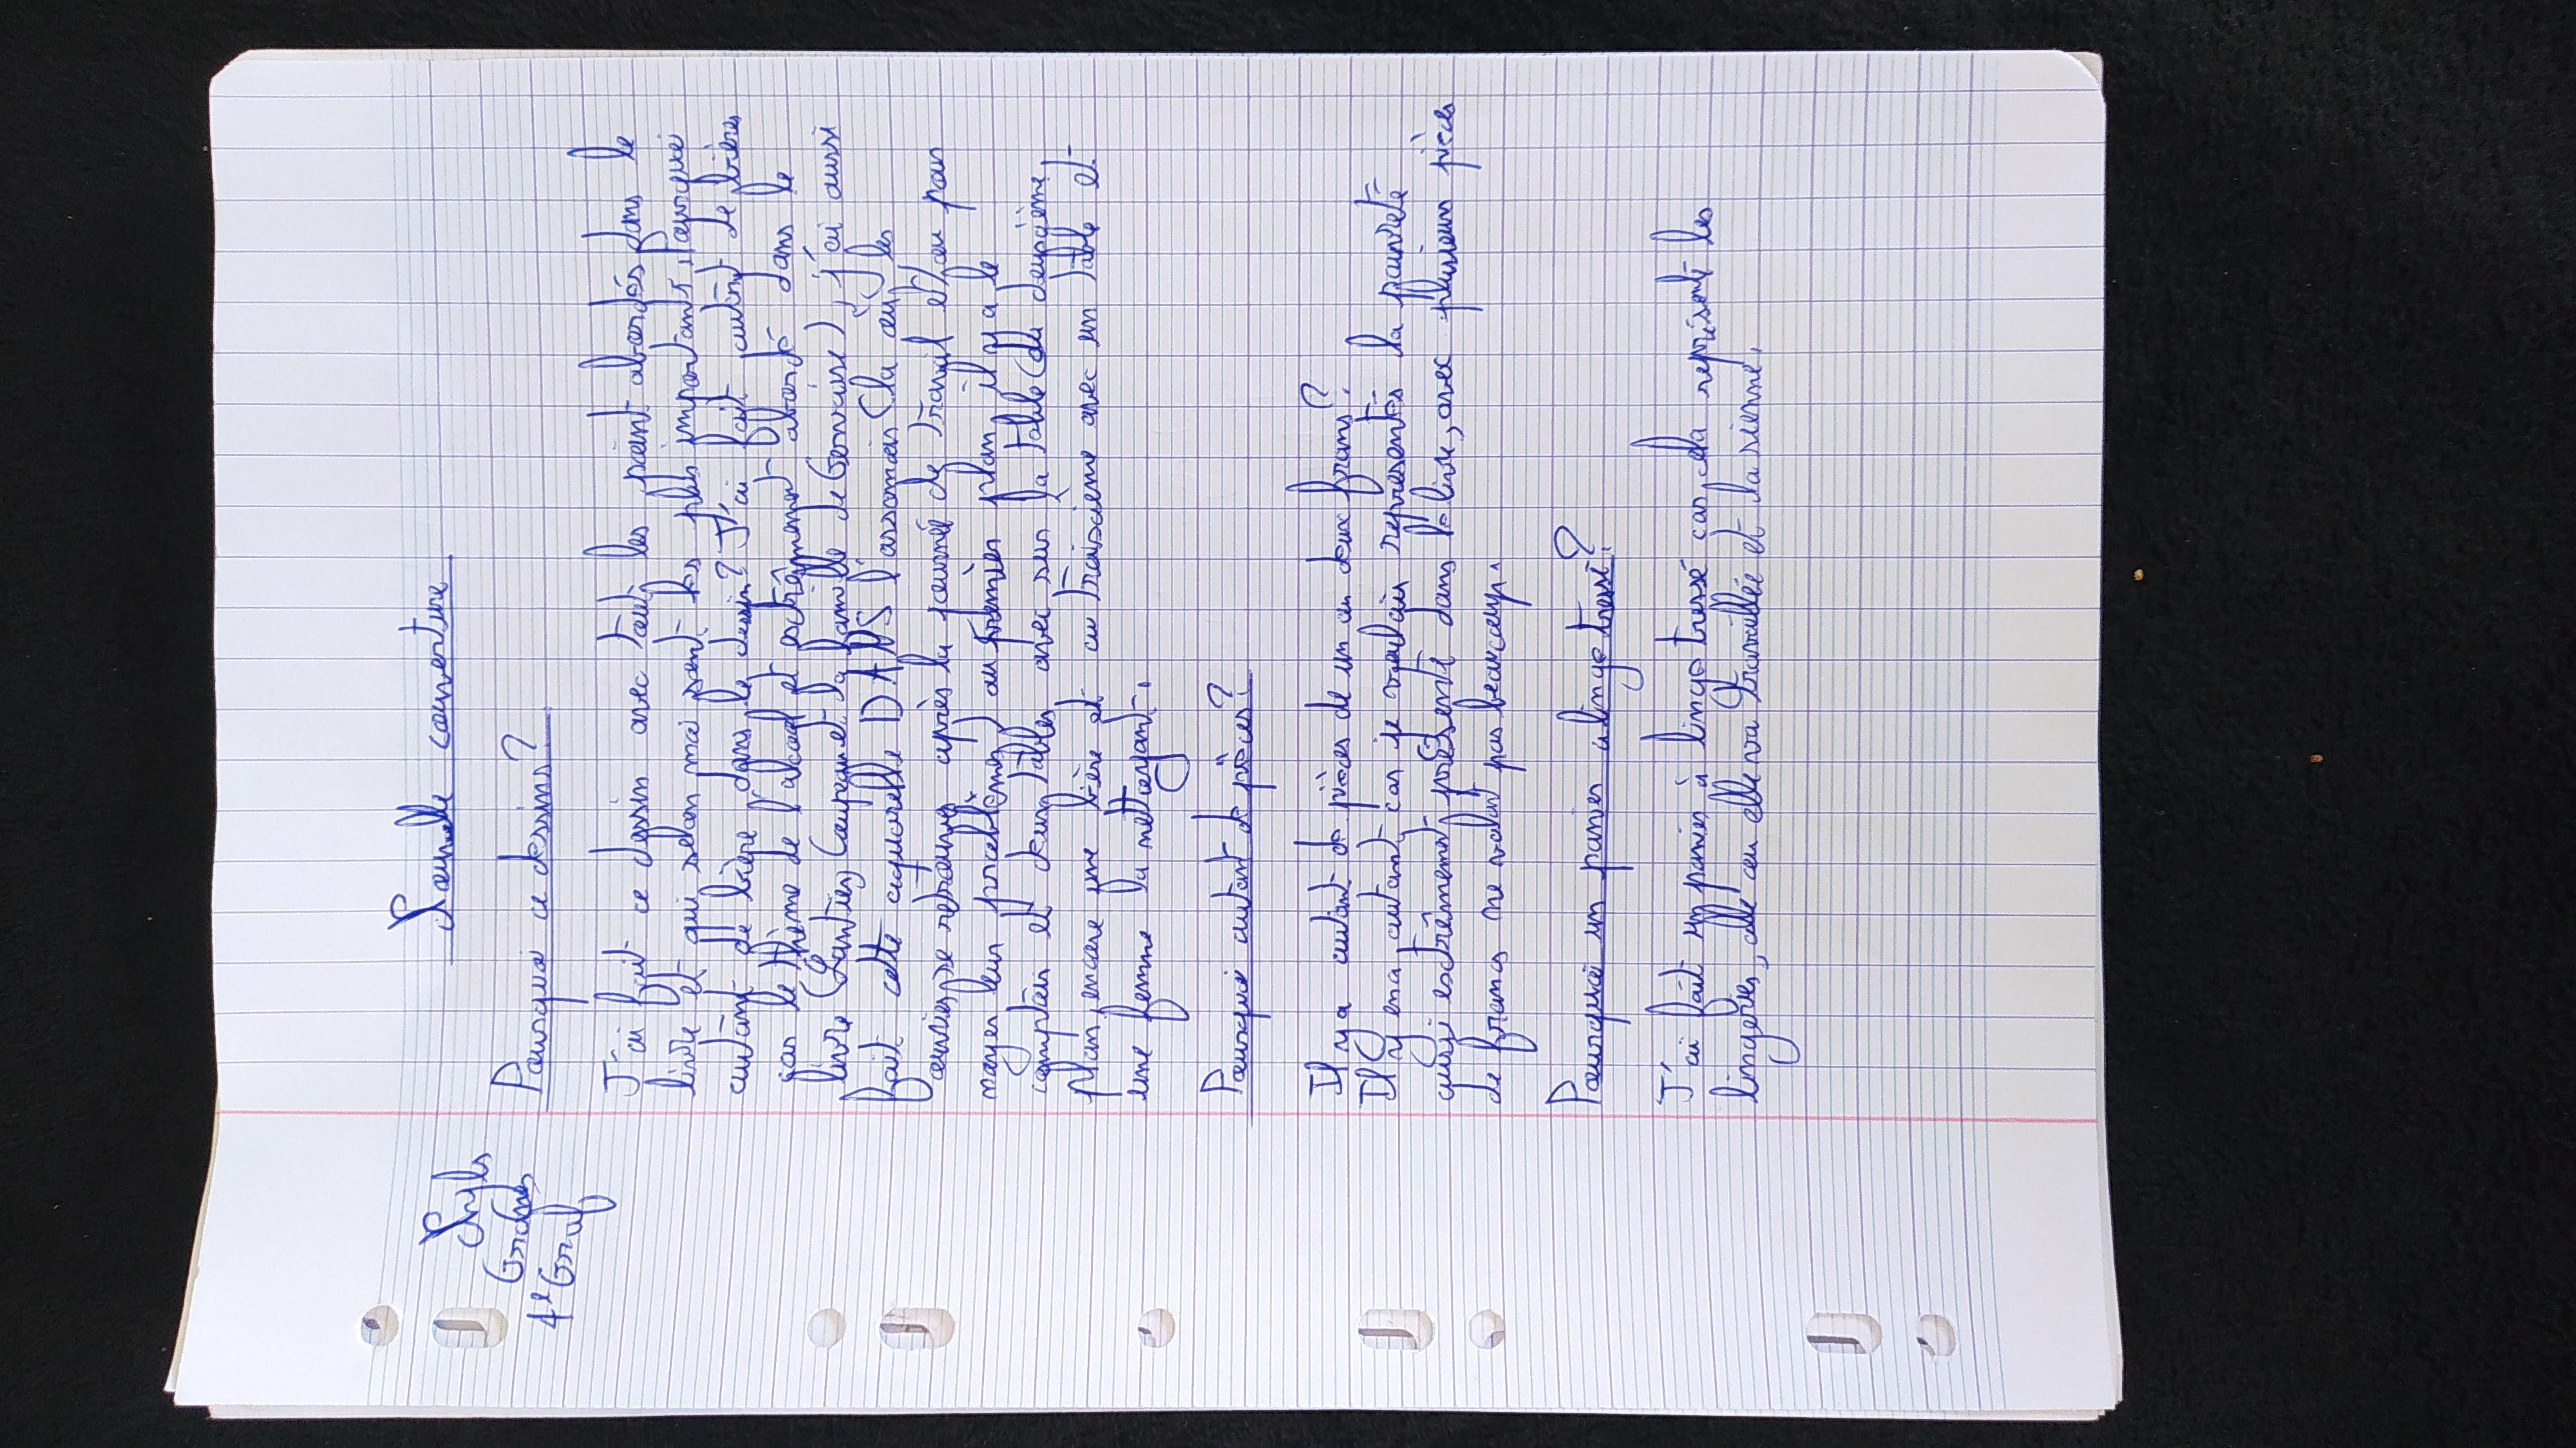 Grades
4e Gruf
Nouvelle couverture
Pourquoi ce dessins ?
J'ai fait ce dessin avec tout les point abordés dans le
livre et qui selon moi sont les plus important, Pourquoi
autant de bière dans le dessin ? J'ai fait autant de bières
car le thème de l'alcool et extrêmement abordé dans le
livre (Lantier, Coupeau et la famille de Gervaise), j'ai aussi
fait cette aquarelle DANS l'assomoir (la ou les
ouvriers se retrouve après la journée de travail et/ou pour
noyer leur problèmes) au premier plan il y a le
comptoir et deux tables avec sur la table (du deuxième
plan) encore une bière et au troisième avec un table et
une femme la nettoyant.
Pourquoi autant de pièces ?
Il y a autant de pièces de un ou deux frans ?
Il y en a autant car je voulais représentés la pauvreté
aussi extrêmement présente dans le livre, avec plusieurs pièces
de francs ne valant pas beaucoup.
Pourquoi un panier a linge tressé ?
J'ai fait un panier à linge tressé car cela représente les
lingeries, elle ou elle va travaillée et la sienne.